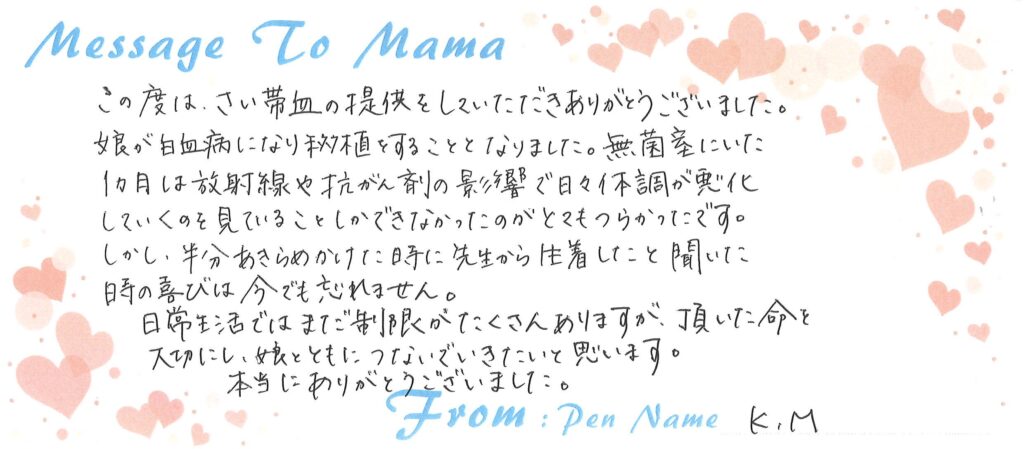 Message To Mama
この度は、さい帯血の提供をしていただきありがとうございました。
娘が白血病になり移植をすることとなりました。無菌室にいた
1カ月は放射線や抗がん剤の影響で日々体調が悪化
していくのを見ていることしかできなかったのがとてもつらかったです。
しかし、半分あきらめかけた時に先生から生着したと聞いた
時の喜びは今でも忘れません。
日常生活ではまだ制限がたくさんありますが、頂いた命を
大切にし、娘とともにつないでいきたいと思います。
本当にありがとうございました。
From : Pen Name K.M